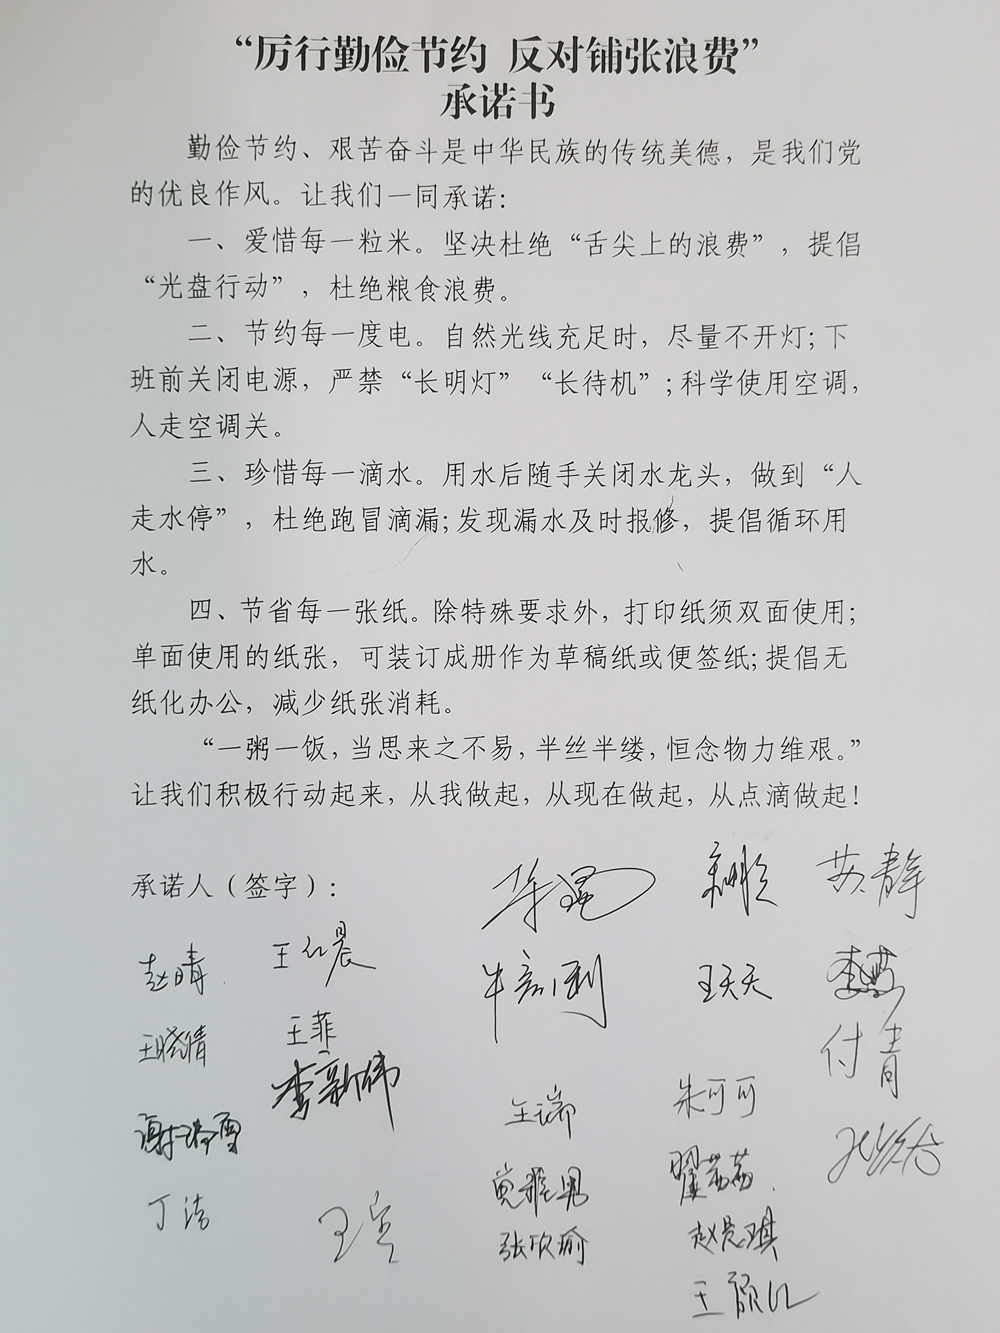 “厉行勤俭节约 反对铺张浪费”
承诺书
勤俭节约、艰苦奋斗是中华民族的传统美德，是我们党
的优良作风。让我们一同承诺：
一、爱惜每一粒米。坚决杜绝“舌尖上的浪费”，提倡
“光盘行动”，杜绝粮食浪费。
二、节约每一度电。自然光线充足时，尽量不开灯；下
班前关闭电源，严禁“长明灯”“长待机”；科学使用空调，
人走空调关。
三、珍惜每一滴水。用水后随手关闭水龙头，做到“人
走水停”，杜绝跑冒滴漏；发现漏水及时报修，提倡循环用
水。
四、节省每一张纸。除特殊要求外，打印纸须双面使用；
单面使用的纸张，可装订成册作为草稿纸或便签纸；提倡无
纸化办公，减少纸张消耗。
“一粥一饭，当思来之不易，半丝半缕，恒念物力维艰。”
让我们积极行动起来，从我做起，从现在做起，从点滴做起！
承诺人（签字）：
苏静
赵晴 王红晨 王天天 李燕
王晓倩 王菲 付青
李新伟 王瑞 朱可可
丁洁 张欣瑜